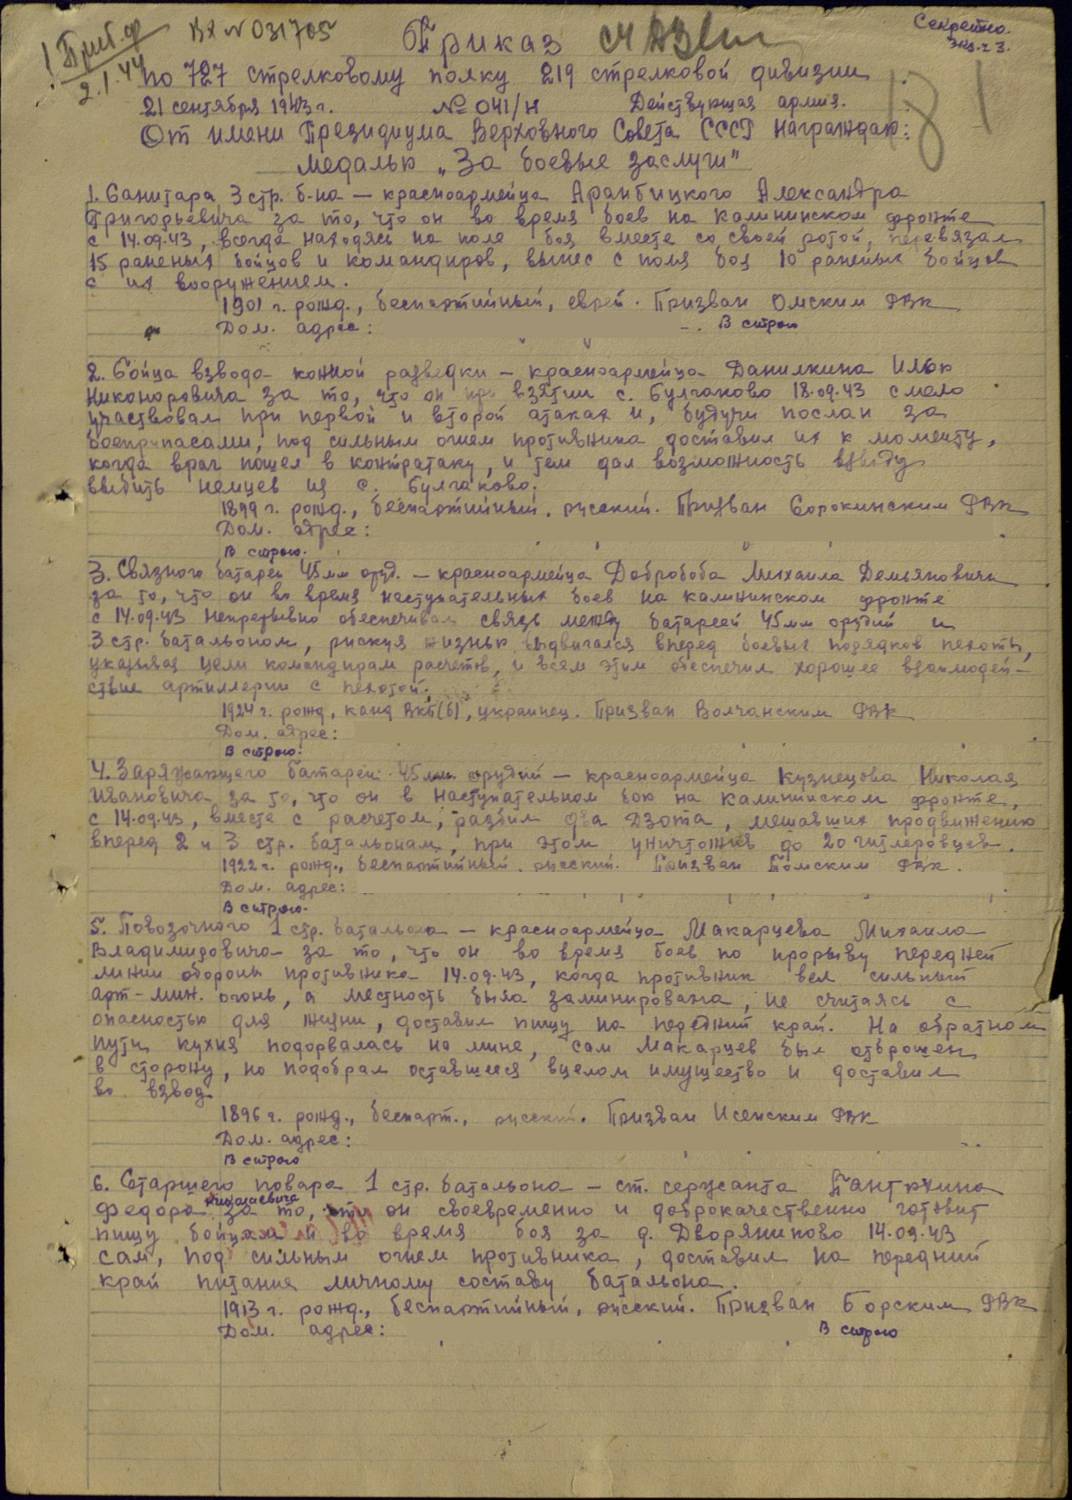 Приб. ф
2.1.44
Вх № 031705
Секретно.
Экз. № 3.
Приказ
по 727 стрелковому полку 219 стрелковой дивизии.
21 сентября 1943 г. № 041/н Действующая армия.
От имени Президиума Верховного Совета СССР награждаю:
медалью „За боевые заслуги"
1. Санитара 3 стр. б-на — красноармейца Аранбицкого Александра
Григорьевича за то, что он во время боев на Калининском фронте
с 14.09.43, всегда находясь на поле боя вместе со своей ротой, перевязал
15 раненых бойцов и командиров, вынес с поля боя 10 раненых бойцов
с их вооружением.
1901 г. рожд., беспартийный, еврей. Призван Омским РВК
Дом. адрес: В строю
2. Бойца взвода конной разведки — красноармейца Данилкина Илью
Никоноровича за то, что он при взятии с. Булгаково 18.09.43 смело
участвовал при первой и второй атаках и, будучи послан за
боеприпасами, под сильным огнем противника доставил их к моменту,
когда враг пошел в контратаку, и тем дал возможность взводу
выбить немцев из с. Булгаково.
1899 г. рожд., беспартийный, русский. Призван Сорокинским РВК
Дом. адрес:
В строю.
3. Связного батареи 45 мм оруд. — красноармейца Добробоба Михаила Демьяновича
за то, что он во время наступательных боев на Калининском фронте
с 14.09.43 непрерывно обеспечивал связь между батареей 45 мм орудий и
3 стр. батальоном, рискуя жизнью выдвигался вперед боевых порядков пехоты,
указывая цели командирам расчетов, и всем этим обеспечил хорошее взаимодей-
ствие артиллерии с пехотой.
1924 г. рожд., канд ВКП(б), украинец. Призван Волчанским РВК
Дом. адрес:
В строю.
4. Заряжающего батареи 45 мм орудий — красноармейца Кузнецова Николая
Ивановича за то, что он в наступательном бою на Калининском фронте,
с 14.09.43, вместе с расчетом, разбил два Дзота, мешавших продвижению
вперед 2 и 3 стр. батальонам, при этом уничтожив до 20 гитлеровцев.
1922 г. рожд., беспартийный, русский. Призван Томским РВК.
Дом. адрес:
В строю.
5. Повозочного 1 стр. батальона — красноармейца Макарцева Михаила
Владимировича за то, что он во время боев по прорыву передней
линии обороны противника 14.09.43, когда противник вел сильный
арт-мин. огонь, а местность была заминирована, не считаясь с
опасностью для жизни, доставил пищу на передний край. На обратном
пути кухня подорвалась на мине, сам Макарцев был отброшен
в сторону, но подобрал оставшееся вцелом имущество и доставил
во взвод.
1896 г. рожд., беспарт., русский. Призван Исенским РВК
Дом. адрес:
В строю
6. Старшего повара 1 стр. батальона — ст. сержанта Пантюхина
Николаевича
Федора за то, что он своевременно и доброкачественно готовит
пищу бойцам и во время боя за д. Дворяниново 14.09.43
сам, под сильным огнем противника, доставил на передний
край питание личному составу батальона.
1913 г. рожд., беспартийный, русский. Призван Борским РВК
Дом. адрес: В строю